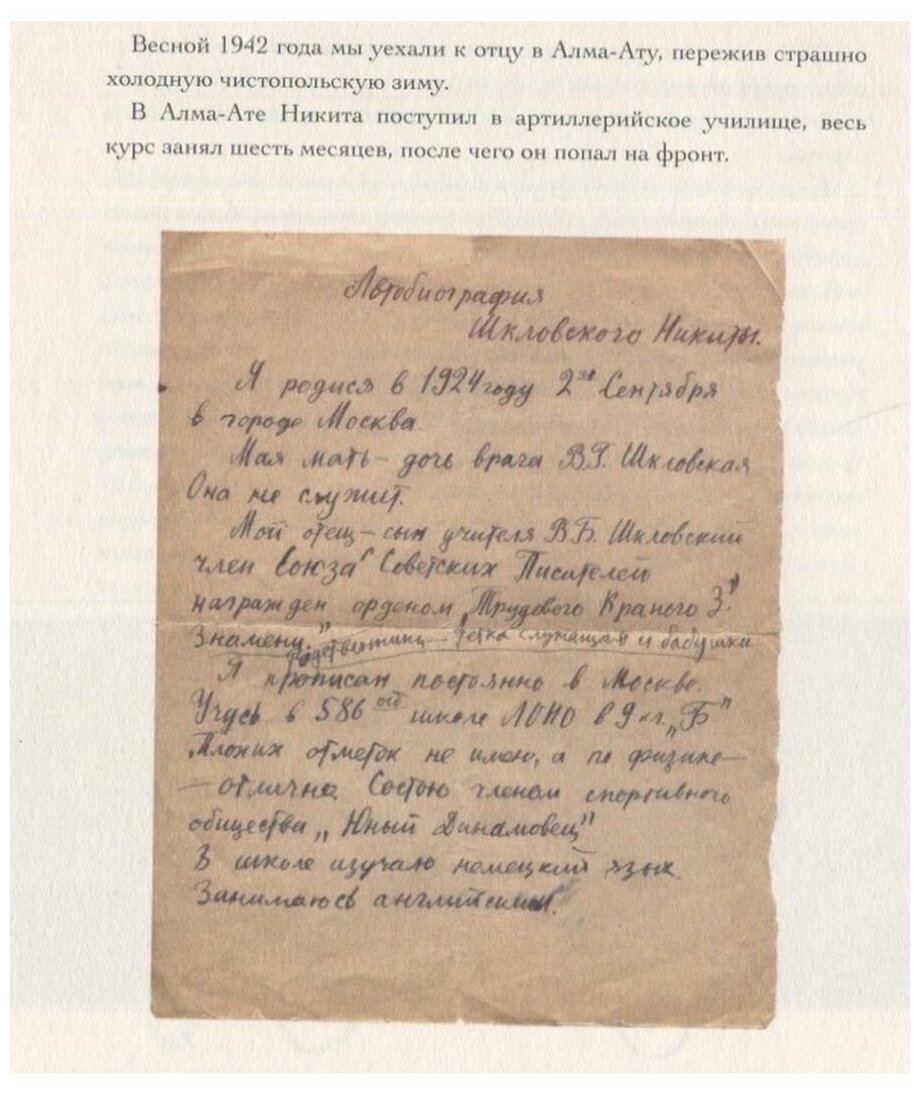 Весной 1942 года мы уехали к отцу в Алма-Ату, пережив страшно
холодную чистопольскую зиму.
В Алма-Ате Никита поступил в артиллерийское училище, весь
курс занял шесть месяцев, после чего он попал на фронт.
Автобиография
Шкловского Никиты.
Я родися в 1924 году 2го Сентября
в городе Москва
Мая мать – дочь врача В.Г. Шкловская
Она не служит.
Мой отец – сын учителя В.Б. Шкловский
член Союза Советских Писателей
награжден орденом „Трудового Краного З.
Знамени." тетка служащая и бабушка
Я прописан постоянно в Москве.
Учусь в 586ой школе ЛОНО в 9 кл. „Б"
Плохих отметок не имею, а по физике –
– отлично. Состою членом спортивного
общества „Юный Динамовец"
В школе изучаю немецкий язык.
Занимаюсь английским.